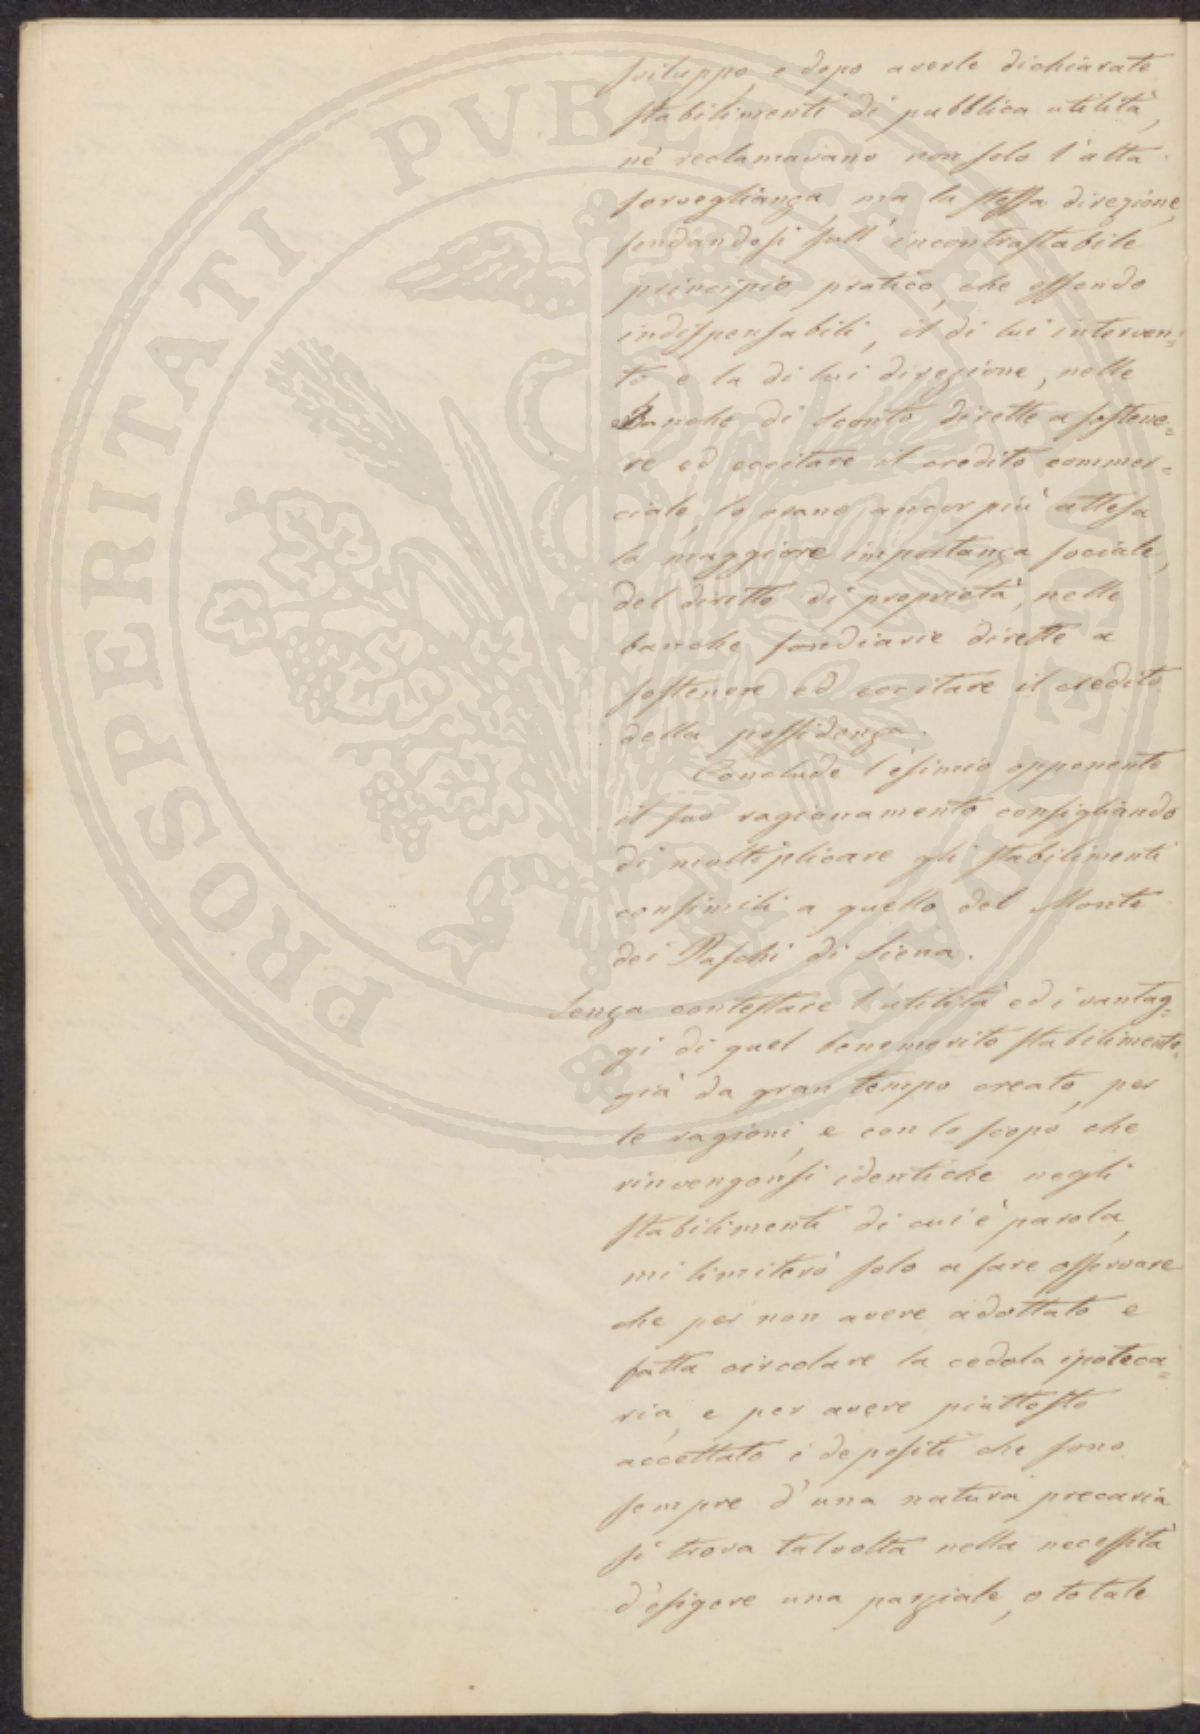 sviluppo, e dopo averle dichiarate
stabilimenti di pubblica utilità,
nè reclamavano non solo l'alta
sorveglianza, ma la stessa direzione,
fondandosi sull'incontrastabile
principio pratico, che essendo
indispensabili, il di lui interven=
to e la di lui direzione, nelle
Banche di Sconto dirette a sostene=
re ed eccitare il credito commer=
ciale, lo erano ancor più attesa
la maggiore importanza sociale,
del diritto di proprietà, nelle
banche fondiarie dirette a
sostenere ed eccitare il credito
della possidenza.
Conclude l'esimio opponente
il suo ragionamento consigliando
di moltiplicare gli stabilimenti
consimili a quello del Monte
dei Paschi di Siena.
Senza contestare l'utilità ed i vantag=
gi di quel benemerito stabilimento
già da gran tempo creato, per
le ragioni, e con lo scopo che
rinvengonsi identiche negli
stabilimenti di cui è parola,
mi limiterò solo a fare osservare
che per non avere adottato e
fatta circolare la cedola ipoteca=
ria, e per avere piuttosto
accettato i depositi che sono
sempre d'una natura precaria
si trova talvolta nella necessità
d'esigere una parziale, o totale
PROSPERITATI PVBLICAE AVGENDAE